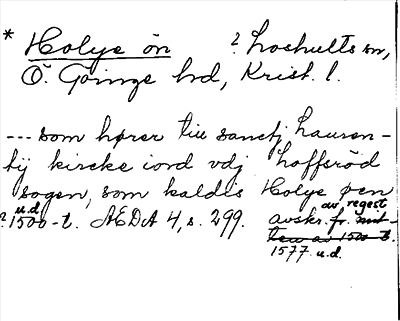 * Holye ön ? Loshults sn,
Ö. Göinge hd, Krist. l.
--- som hører till sanctj Lauren-
tij kircke iord vdj Loffsröd
sogen, som kaldis Holye øen
u.d. av regest
?1500-t. ÆDA 4, s. 299. avskr. fr. mit-
ten av 1500-t.
1577 u.d.